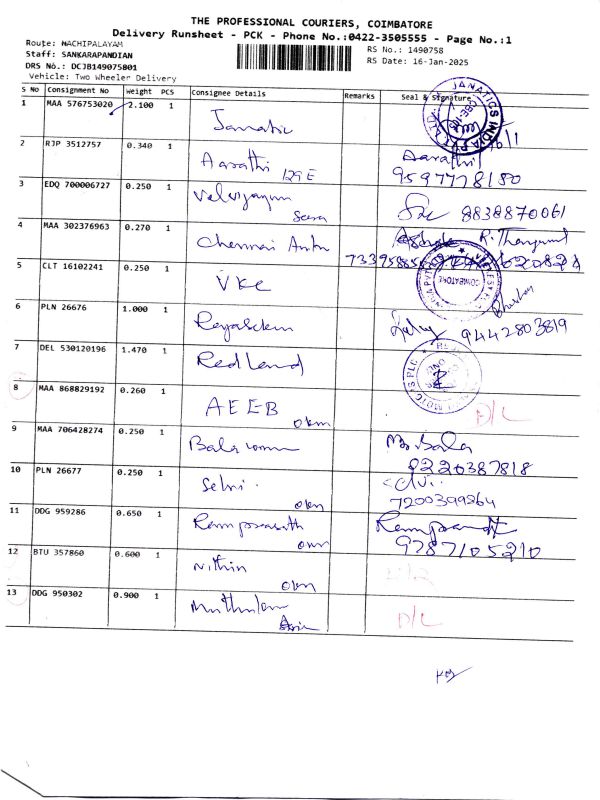 THE PROFESSIONAL COURIERS, COIMBATORE
Delivery Runsheet - PCK - Phone No.:0422-3505555 - Page No.:1
Route: NACHIPALAYAM
RS No.: 1490758
Staff: SANKARAPANDIAN
RS Date: 16-Jan-2025
DRS No.: DCJB149075801
Vehicle: Two Wheeler Delivery
S No Consignment No Weight PCS Consignee Details Remarks Seal & Signature
1 MAA 576753020 2.100 1 Janatic
JANATICS INDIA
2 RJP 3512757 0.340 1 Aarathi 129 E Aarathi
9597778180
3 EDQ 700006727 0.250 1 8838870061
4 MAA 302376963 0.270 1 Chennai
5 CLT 16102241 0.250 1 VKC
COIMBATORE
6 PLN 26676 1.000 1 9442803819
7 DEL 530120196 1.470 1 Redland
8 MAA 868829192 0.260 1 AEEB okm D/L
9 MAA 706428274 0.250 1 Bala
8220387818
10 PLN 26677 0.250 1 Selvi okm
7200399864
11 DDG 959286 0.650 1 Ramprasath
9787105210
12 BTU 357860 0.600 1 Nithin okm
13 DDG 950302 0.900 1 D/L